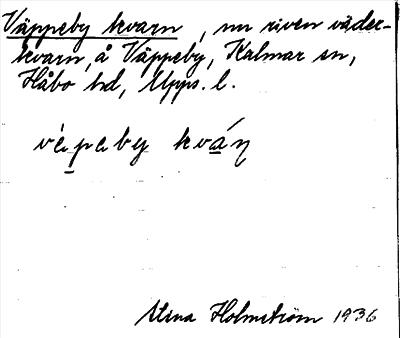 Väppeby kvarn, nu riven väder-
kvarn, å Väppeby, Kalmar sn,
Håbo hd, Upps. l.
vèpeby kváɳ
Stina Holmström 1936